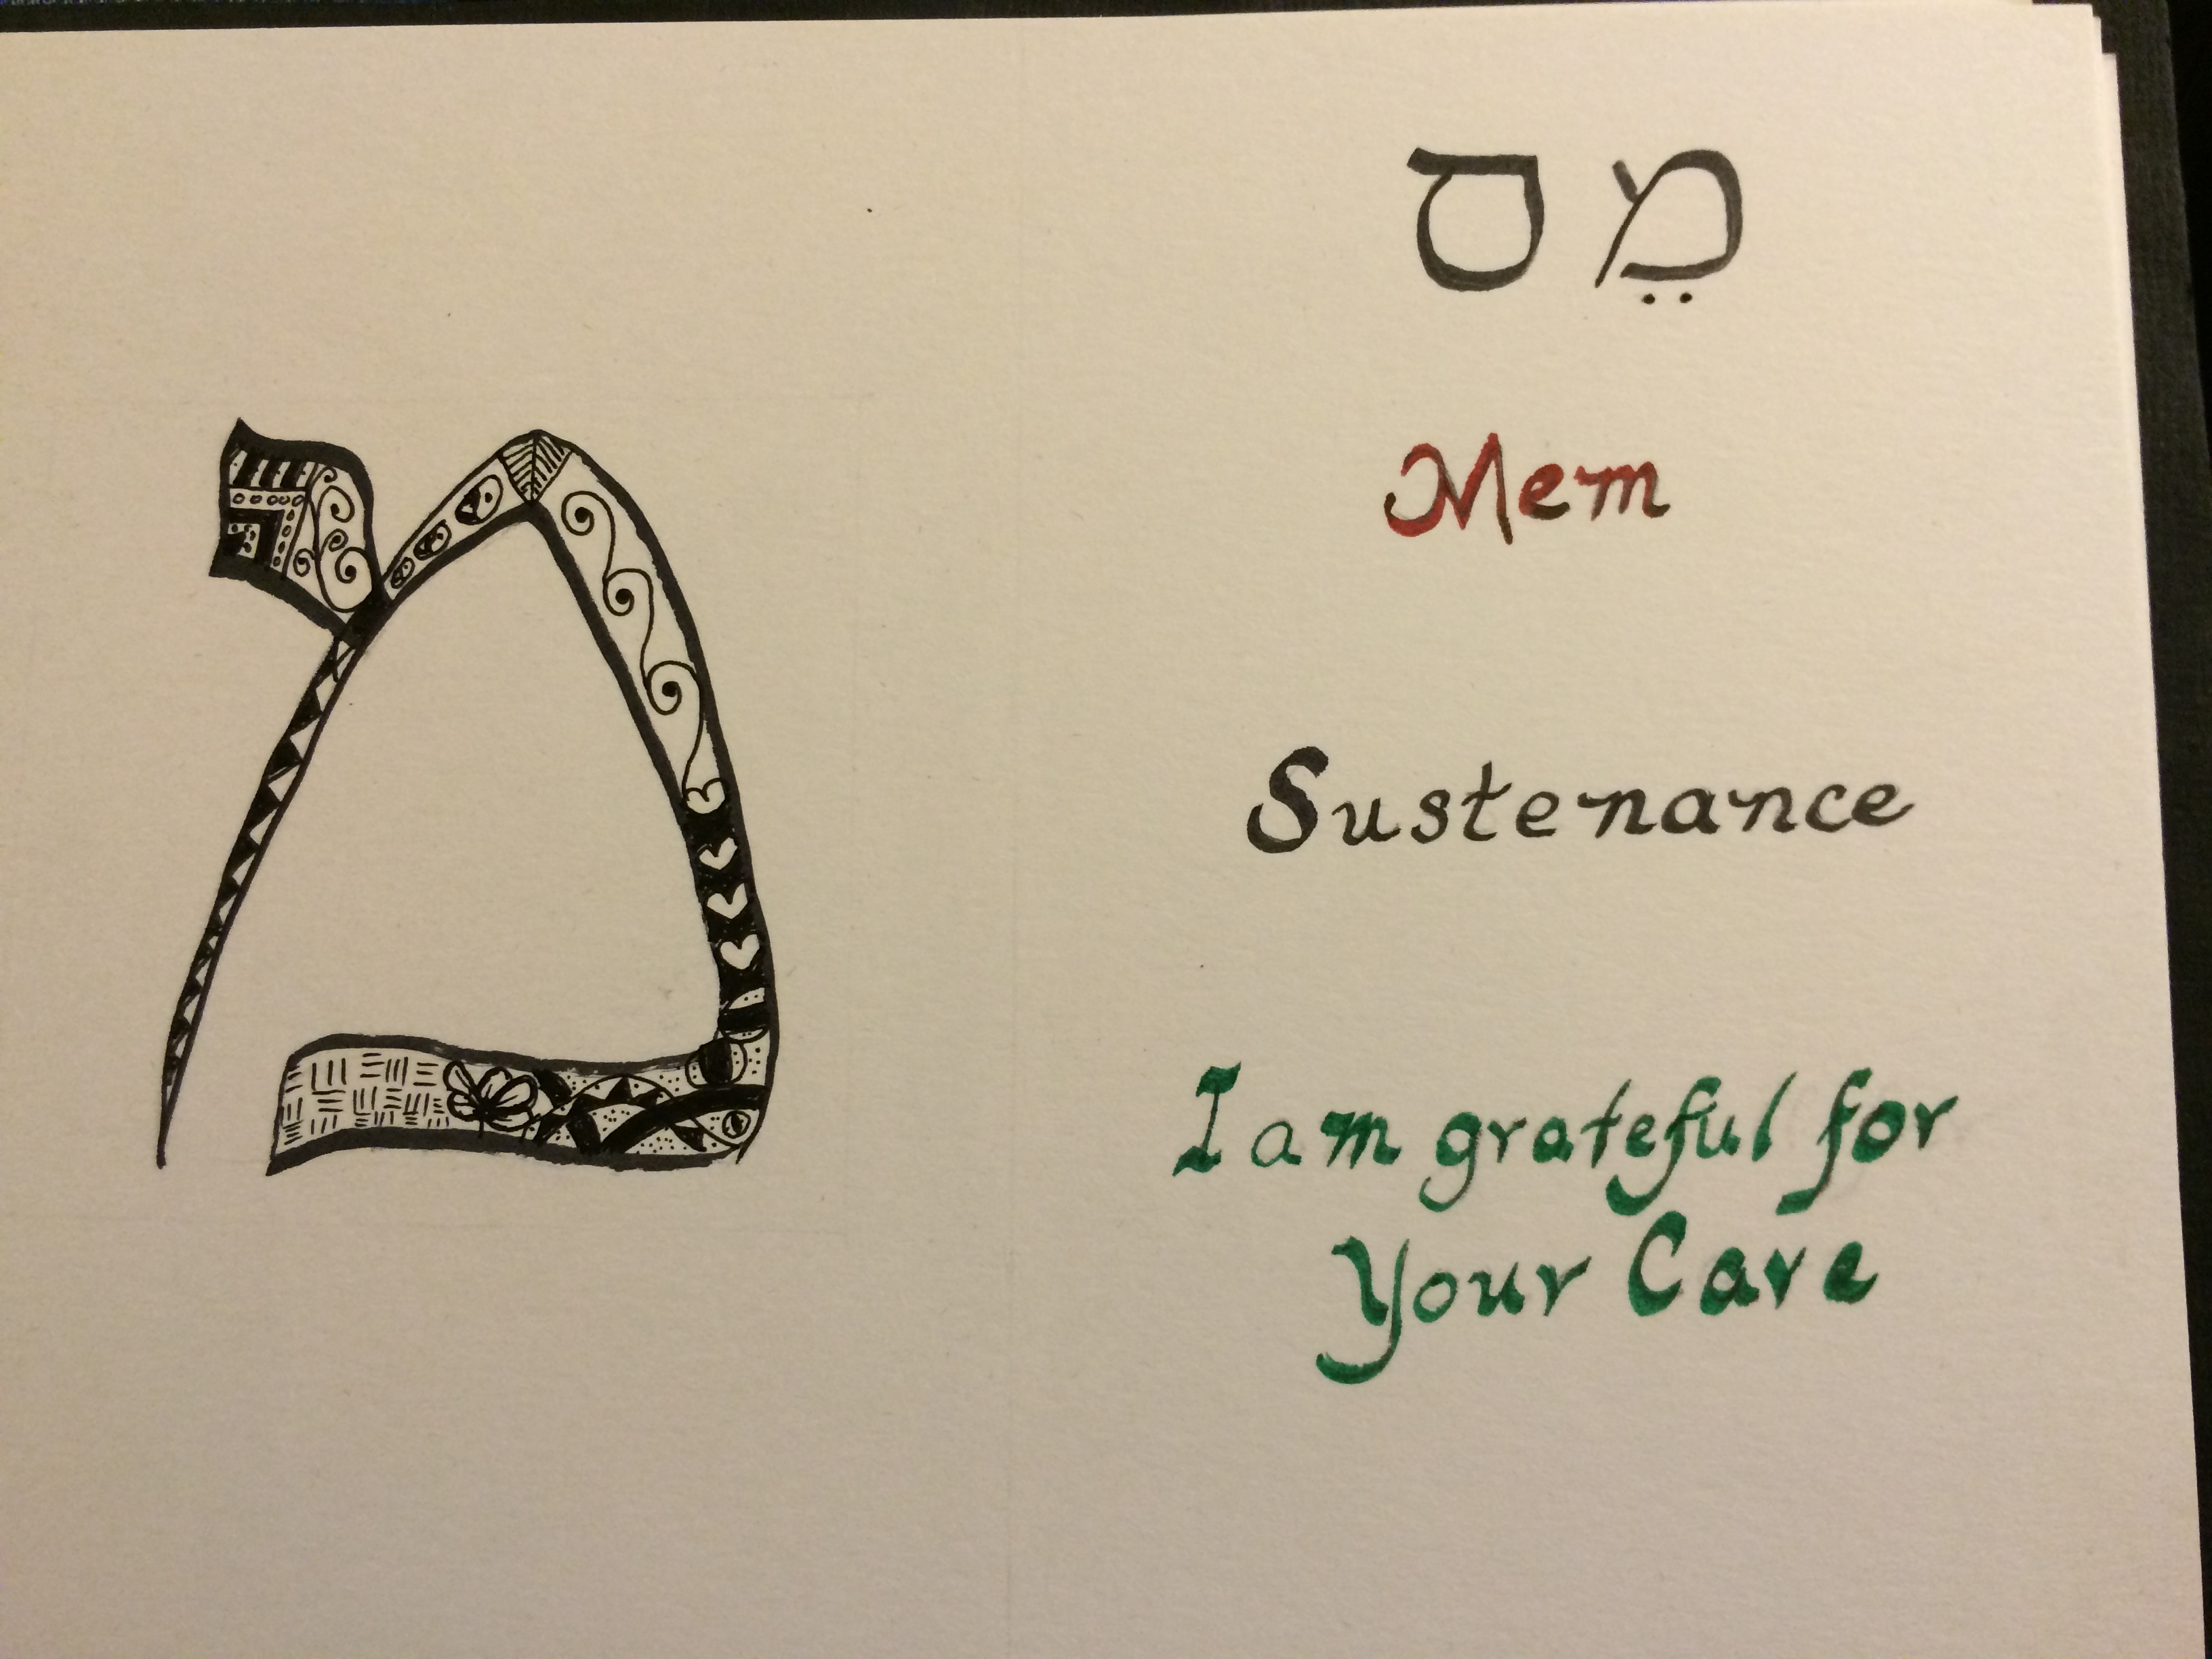 מ
מֵס
Mem
Sustenance
I am grateful for
Your Care